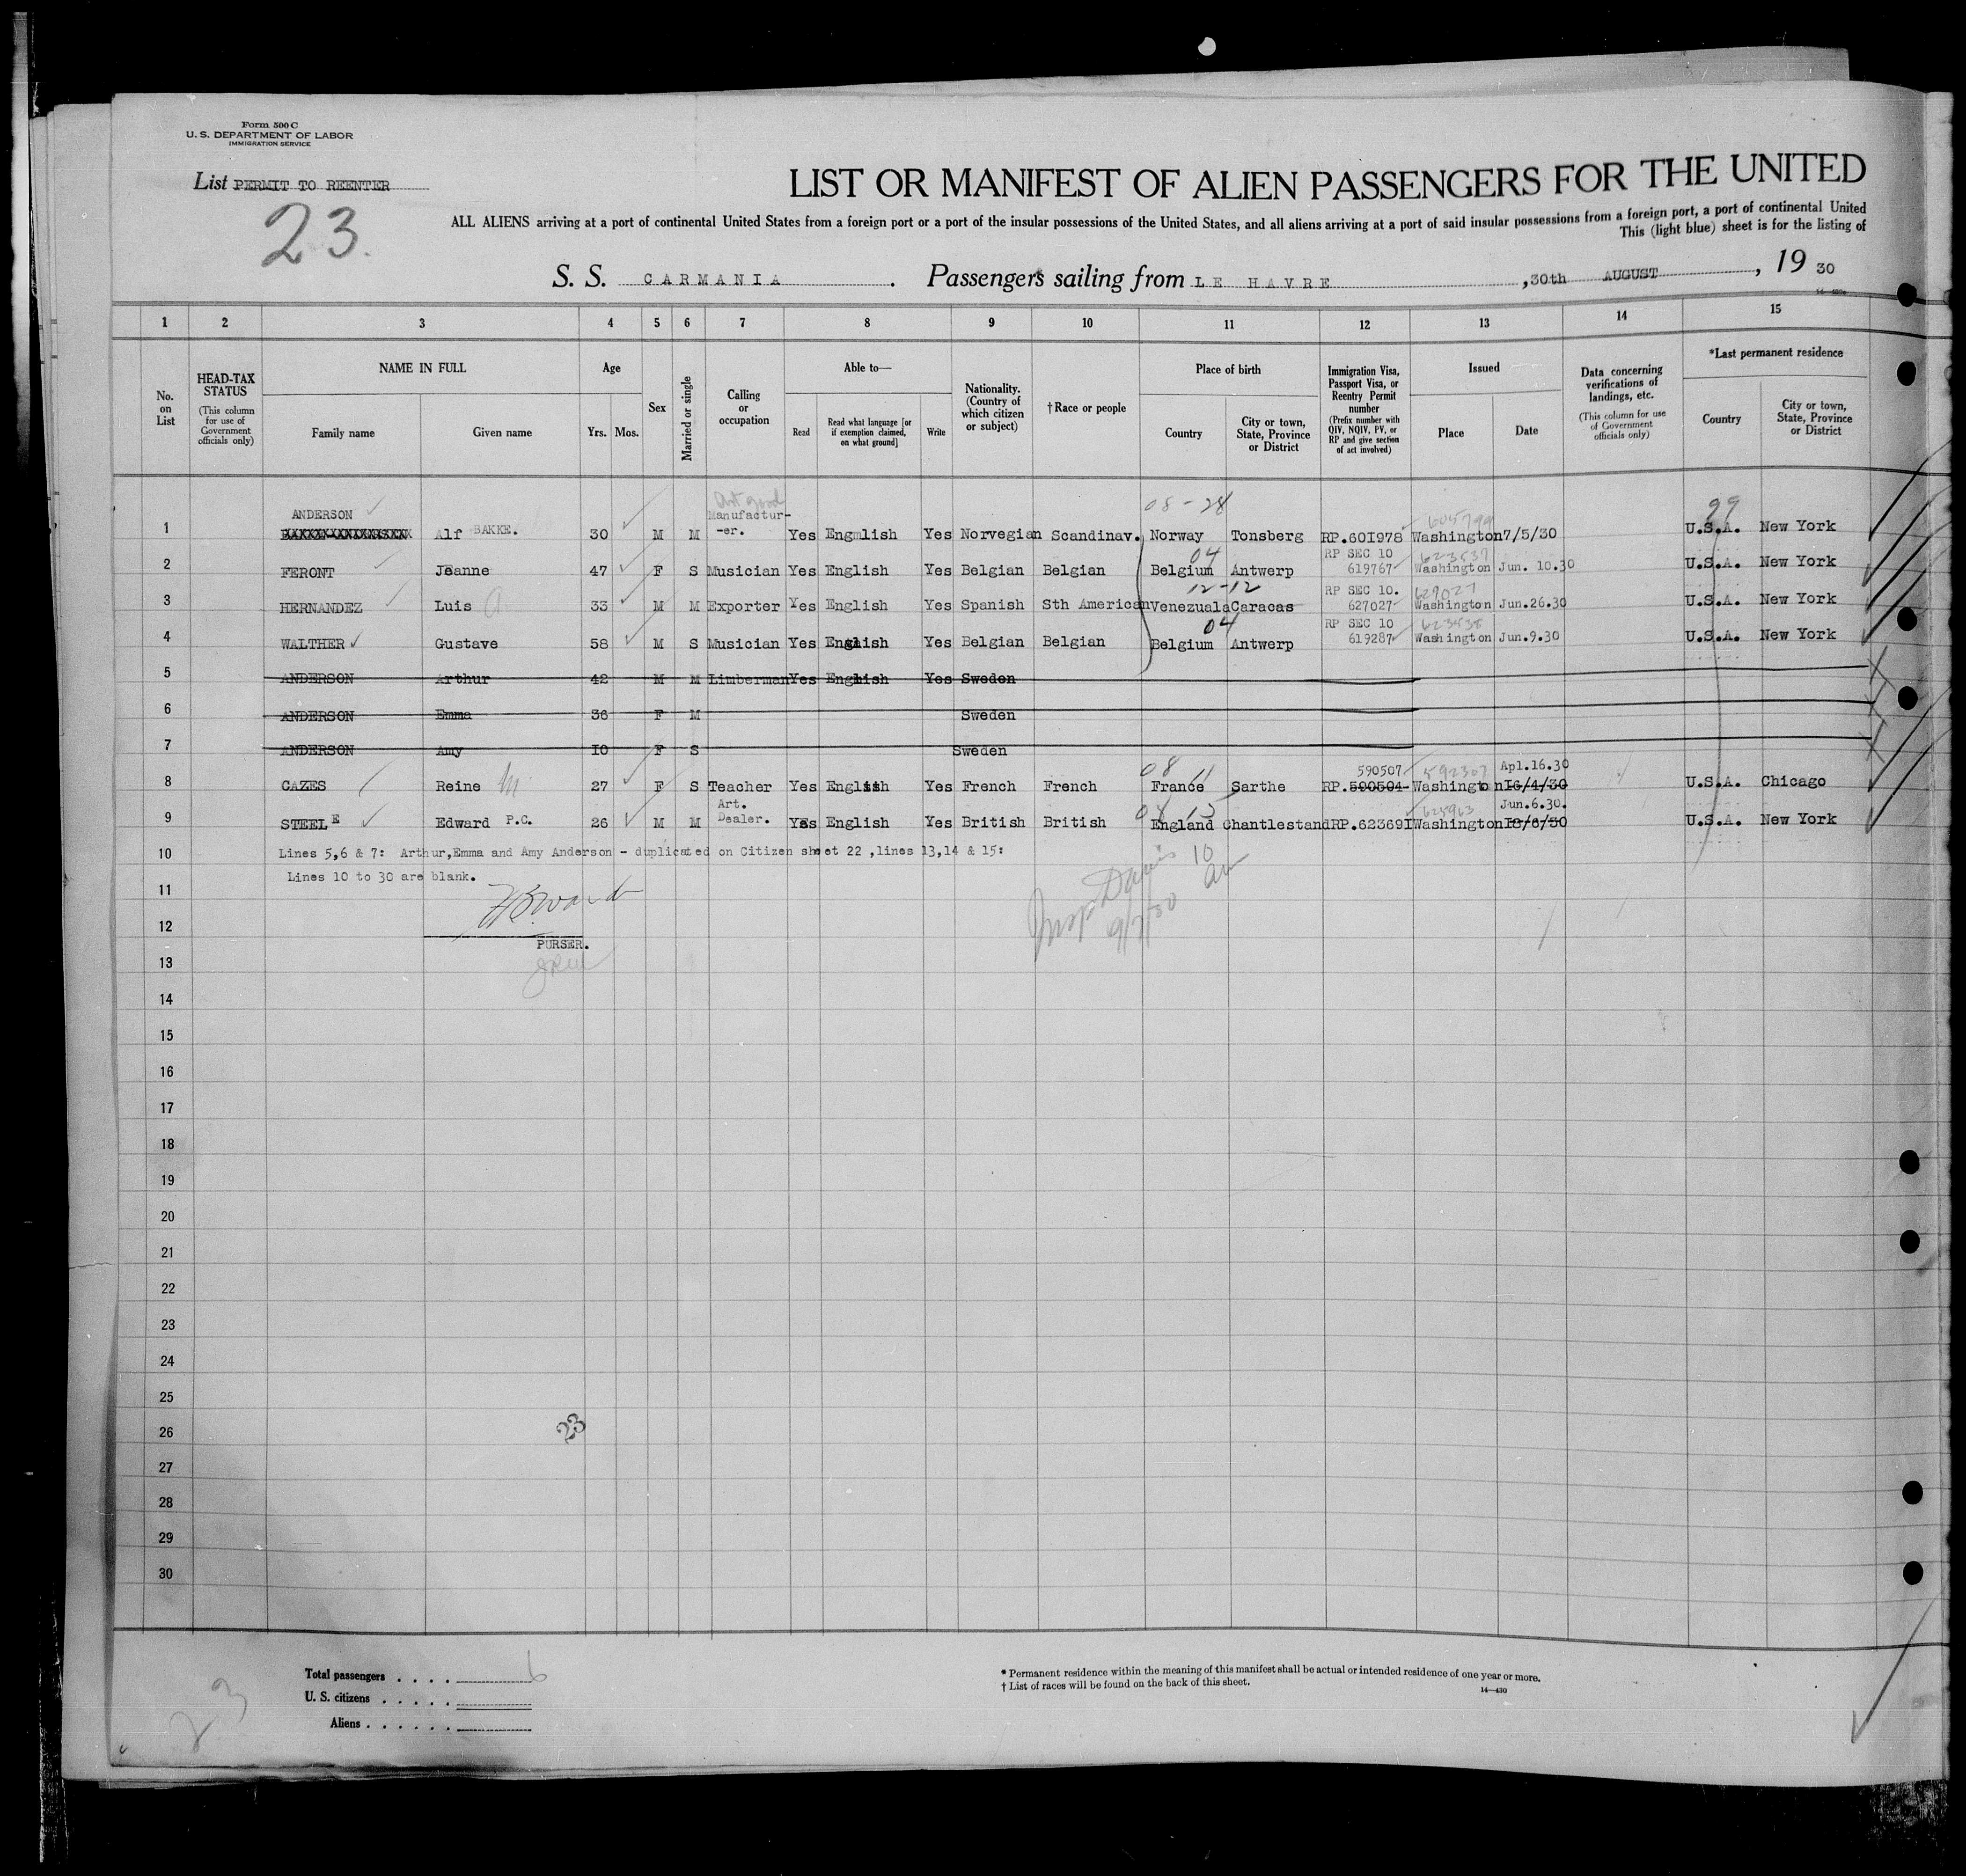 Form 500 C
U. S. DEPARTMENT OF LABOR
IMMIGRATION SERVICE
List PERMIT TO REENTER
23.
LIST OR MANIFEST OF ALIEN PASSENGERS FOR THE UNITED
ALL ALIENS arriving at a port of continental United States from a foreign port or a port of the insular possessions of the United States, and all aliens arriving at a port of said insular possessions from a foreign port, a port of continental United
This (light blue) sheet is for the listing of
S. S. CARMANIA. Passengers sailing from LE HAVRE, 30th AUGUST, 19 30
1 2 3 4 5 6 7 8 9 10 11 12 13 14 15
No. on List
HEAD-TAX STATUS (This column for use of Government officials only)
NAME IN FULL Family name Given name
Age Yrs. Mos.
Sex
Married or single
Calling or occupation
Able to— Read Read what language [or if exemption claimed, on what ground] Write
Nationality. (Country of which citizen or subject)
† Race or people
Place of birth Country City or town, State, Province or District
Immigration Visa, Passport Visa, or Reentry Permit number (Prefix number with QIV, NQIV, PV, or RP and give section of act involved)
Issued Place Date
Data concerning verifications of landings, etc. (This column for use of Government officials only)
*Last permanent residence Country City or town, State, Province or District
08-28 605799 99
1 ANDERSON Alf BAKKE. 30 M M Art good Manufactur-er. Yes Engmlish Yes Norvegian Scandinav. Norway Tonsberg RP.60I978 Washington 7/5/30 U.S.A. New York
04 623537
2 FERONT Jeanne 47 F S Musician Yes English Yes Belgian Belgian Belgium Antwerp RP SEC 10 619767 Washington Jun. 10.30 U.S.A. New York
12-12 629027
3 HERNANDEZ Luis A 33 M M Exporter Yes English Yes Spanish Sth American Venezuala Caracas RP SEC 10. 627027 Washington Jun.26.30 U.S.A. New York
04 623538
4 WALTHER Gustave 58 M S Musician Yes English Yes Belgian Belgian Belgium Antwerp RP SEC 10 619287 Washington Jun.9.30 U.S.A. New York
5 ANDERSON Arthur 42 M M Limberman Yes English Yes Sweden
6 ANDERSON Emma 36 F M Sweden
7 ANDERSON Amy I0 F S Sweden
08 11 590507 592307 Apl.16.30
8 CAZES Reine M 27 F S Teacher Yes English Yes French French France Sarthe RP.590504 Washington I6/4/30 U.S.A. Chicago
08 15 625963 Jun.6.30.
9 STEELE Edward P.C. 26 M M Art. Dealer. Yes English Yes British British England Chantlestand RP.62369I Washington I8/6/30 U.S.A. New York
10 Lines 5,6 & 7: Arthur,Emma and Amy Anderson - duplicated on Citizen sheet 22 ,lines 13,14 & 15:
Lines 10 to 30 are blank.
11
12
PURSER.
Insp Davis 10
9/7/30
13
14
15
16
17
18
19
20
21
22
23
24
25
26
23
27
28
29
30
Total passengers . . . . 6
U. S. citizens . . . . .
Aliens . . . . . .
23
* Permanent residence within the meaning of this manifest shall be actual or intended residence of one year or more.
† List of races will be found on the back of this sheet.
14—430